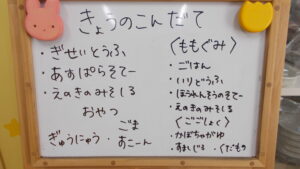 きょうのこんだて
・ぎせいとうふ
・あすぱらそてー
・えのきのみそしる
おやつ
ぎゅうにゅう・ごま
すこーん
〈ももぐみ〉
・ごはん
・いりどうふ
・ほうれんそうのそてー
・えのきのみそしる
〈ごごしょく〉
・かぼちゃがゆ
・すましじる ・くだもの